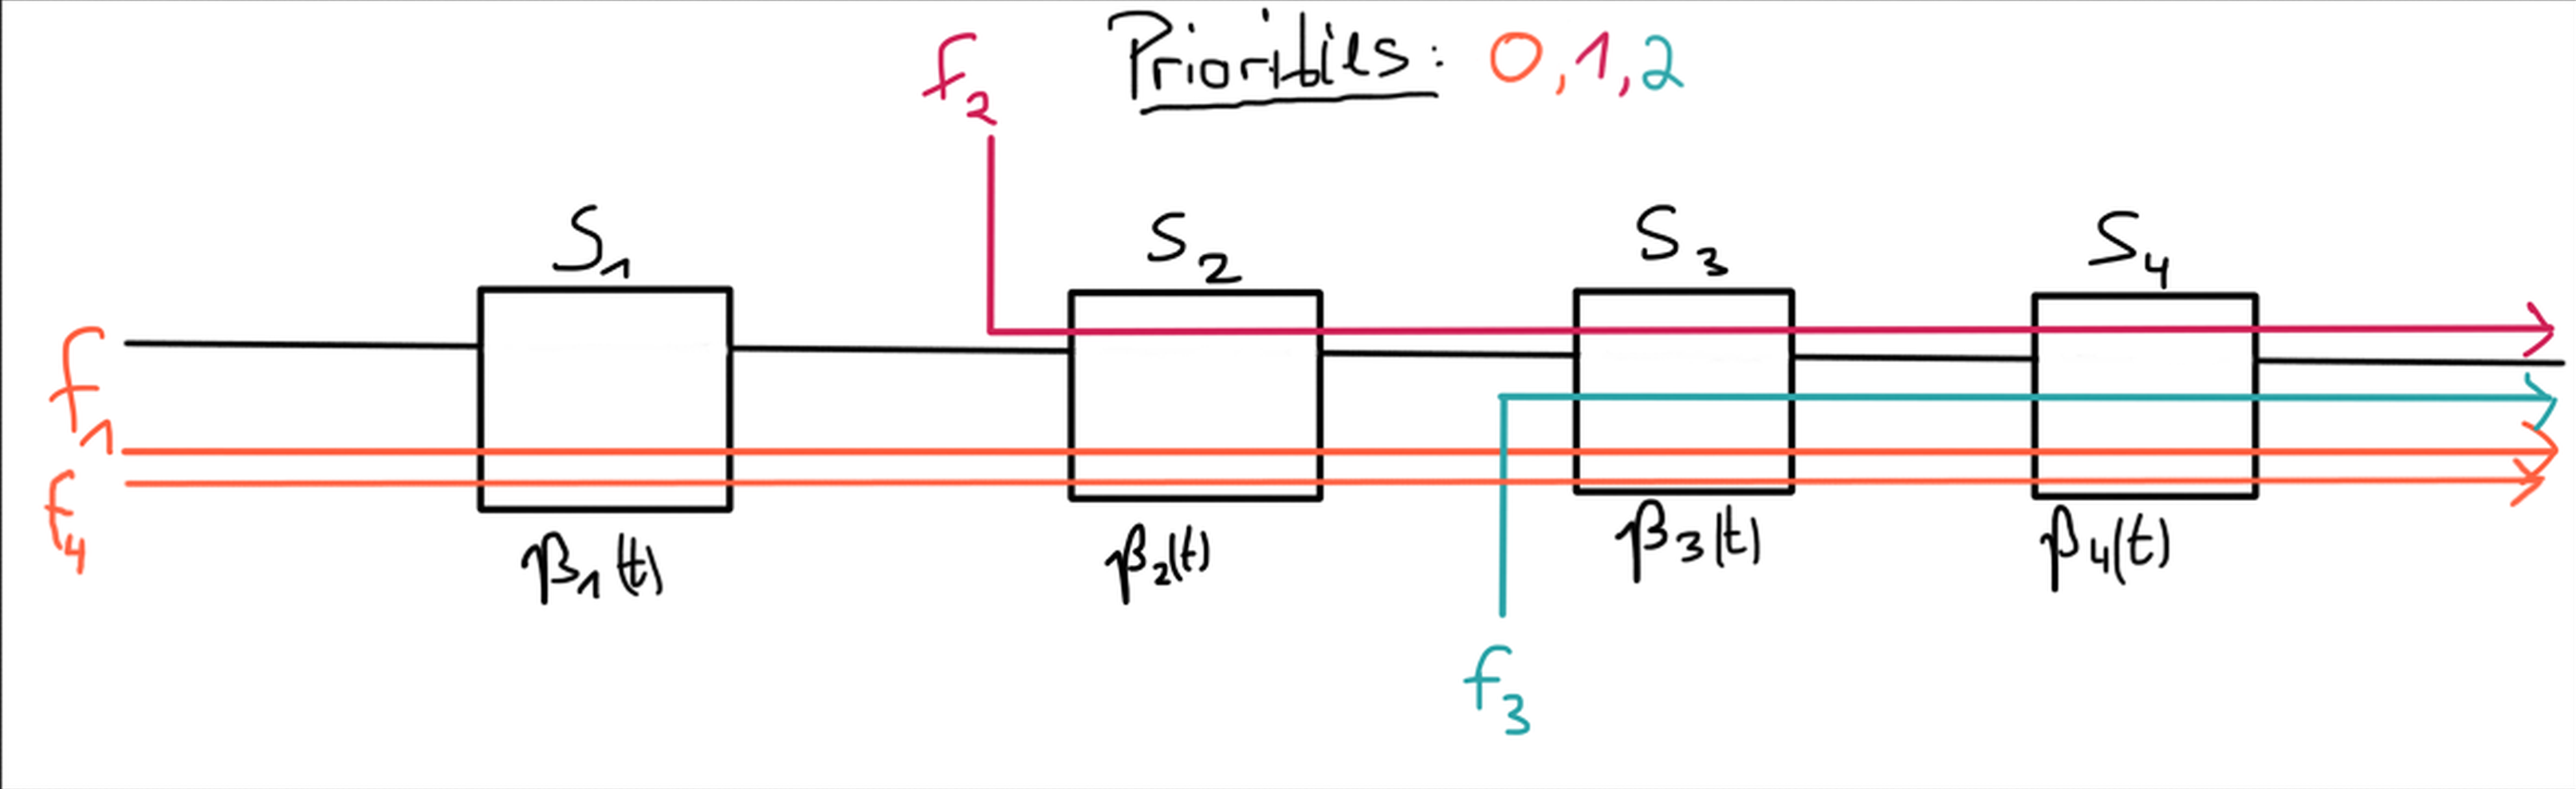 Priorities: 0, 1, 2
f2
S1
S2
S3
S4
f1
f4
β1(t)
β2(t)
β3(t)
β4(t)
f3